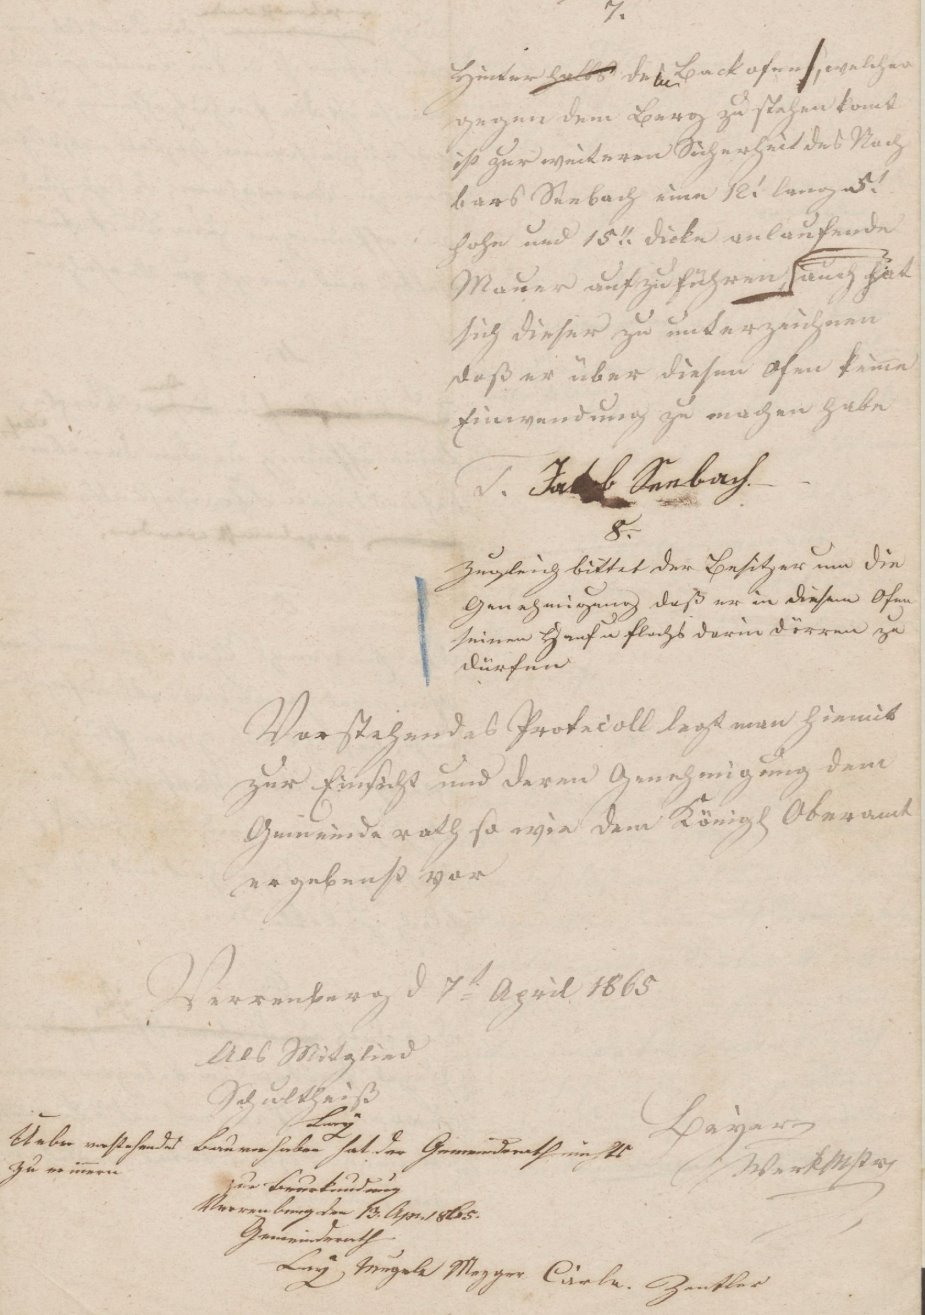 7.
Hinter halbs des Backofens, welcher
gegen dem Berg zu stehen komt
ist zur weiteren Sicherheit des Nach
bars Seebach eine 12.' lang 5.'
hohe und 15." dicke anlaufende
Mauer aufzuführen, auch hat
sich dieser zu unterzeichnen
daß er über diesen Ofen keine
Einwendung zu machen habe
T. Jakob Seebach.
8.
Zugleich bittet der Besitzer um die
Genehmigung daß er in diesem Ofen
seinen Hanf u Flachs darin dörren zu
dürfen
Vorstehendes Protocoll legt man hiemit
zur Einsicht und deren Genehmigung dem
Gemeinderath so wie dem Königl Oberamt
ergebenst vor
Verrenberg d 7t April 1865
Als Mitglied
Schultheiß
Lay
Beyer
Werkmstr
Ueber vorstehendes Bauvorhaben hat der Gemeinderath nichts
zu erinnern
zur Beurkundung
Verrenberg den 13. Apr. 1865.
Gemeinderath
Lay, Mezger Carle. Zentler